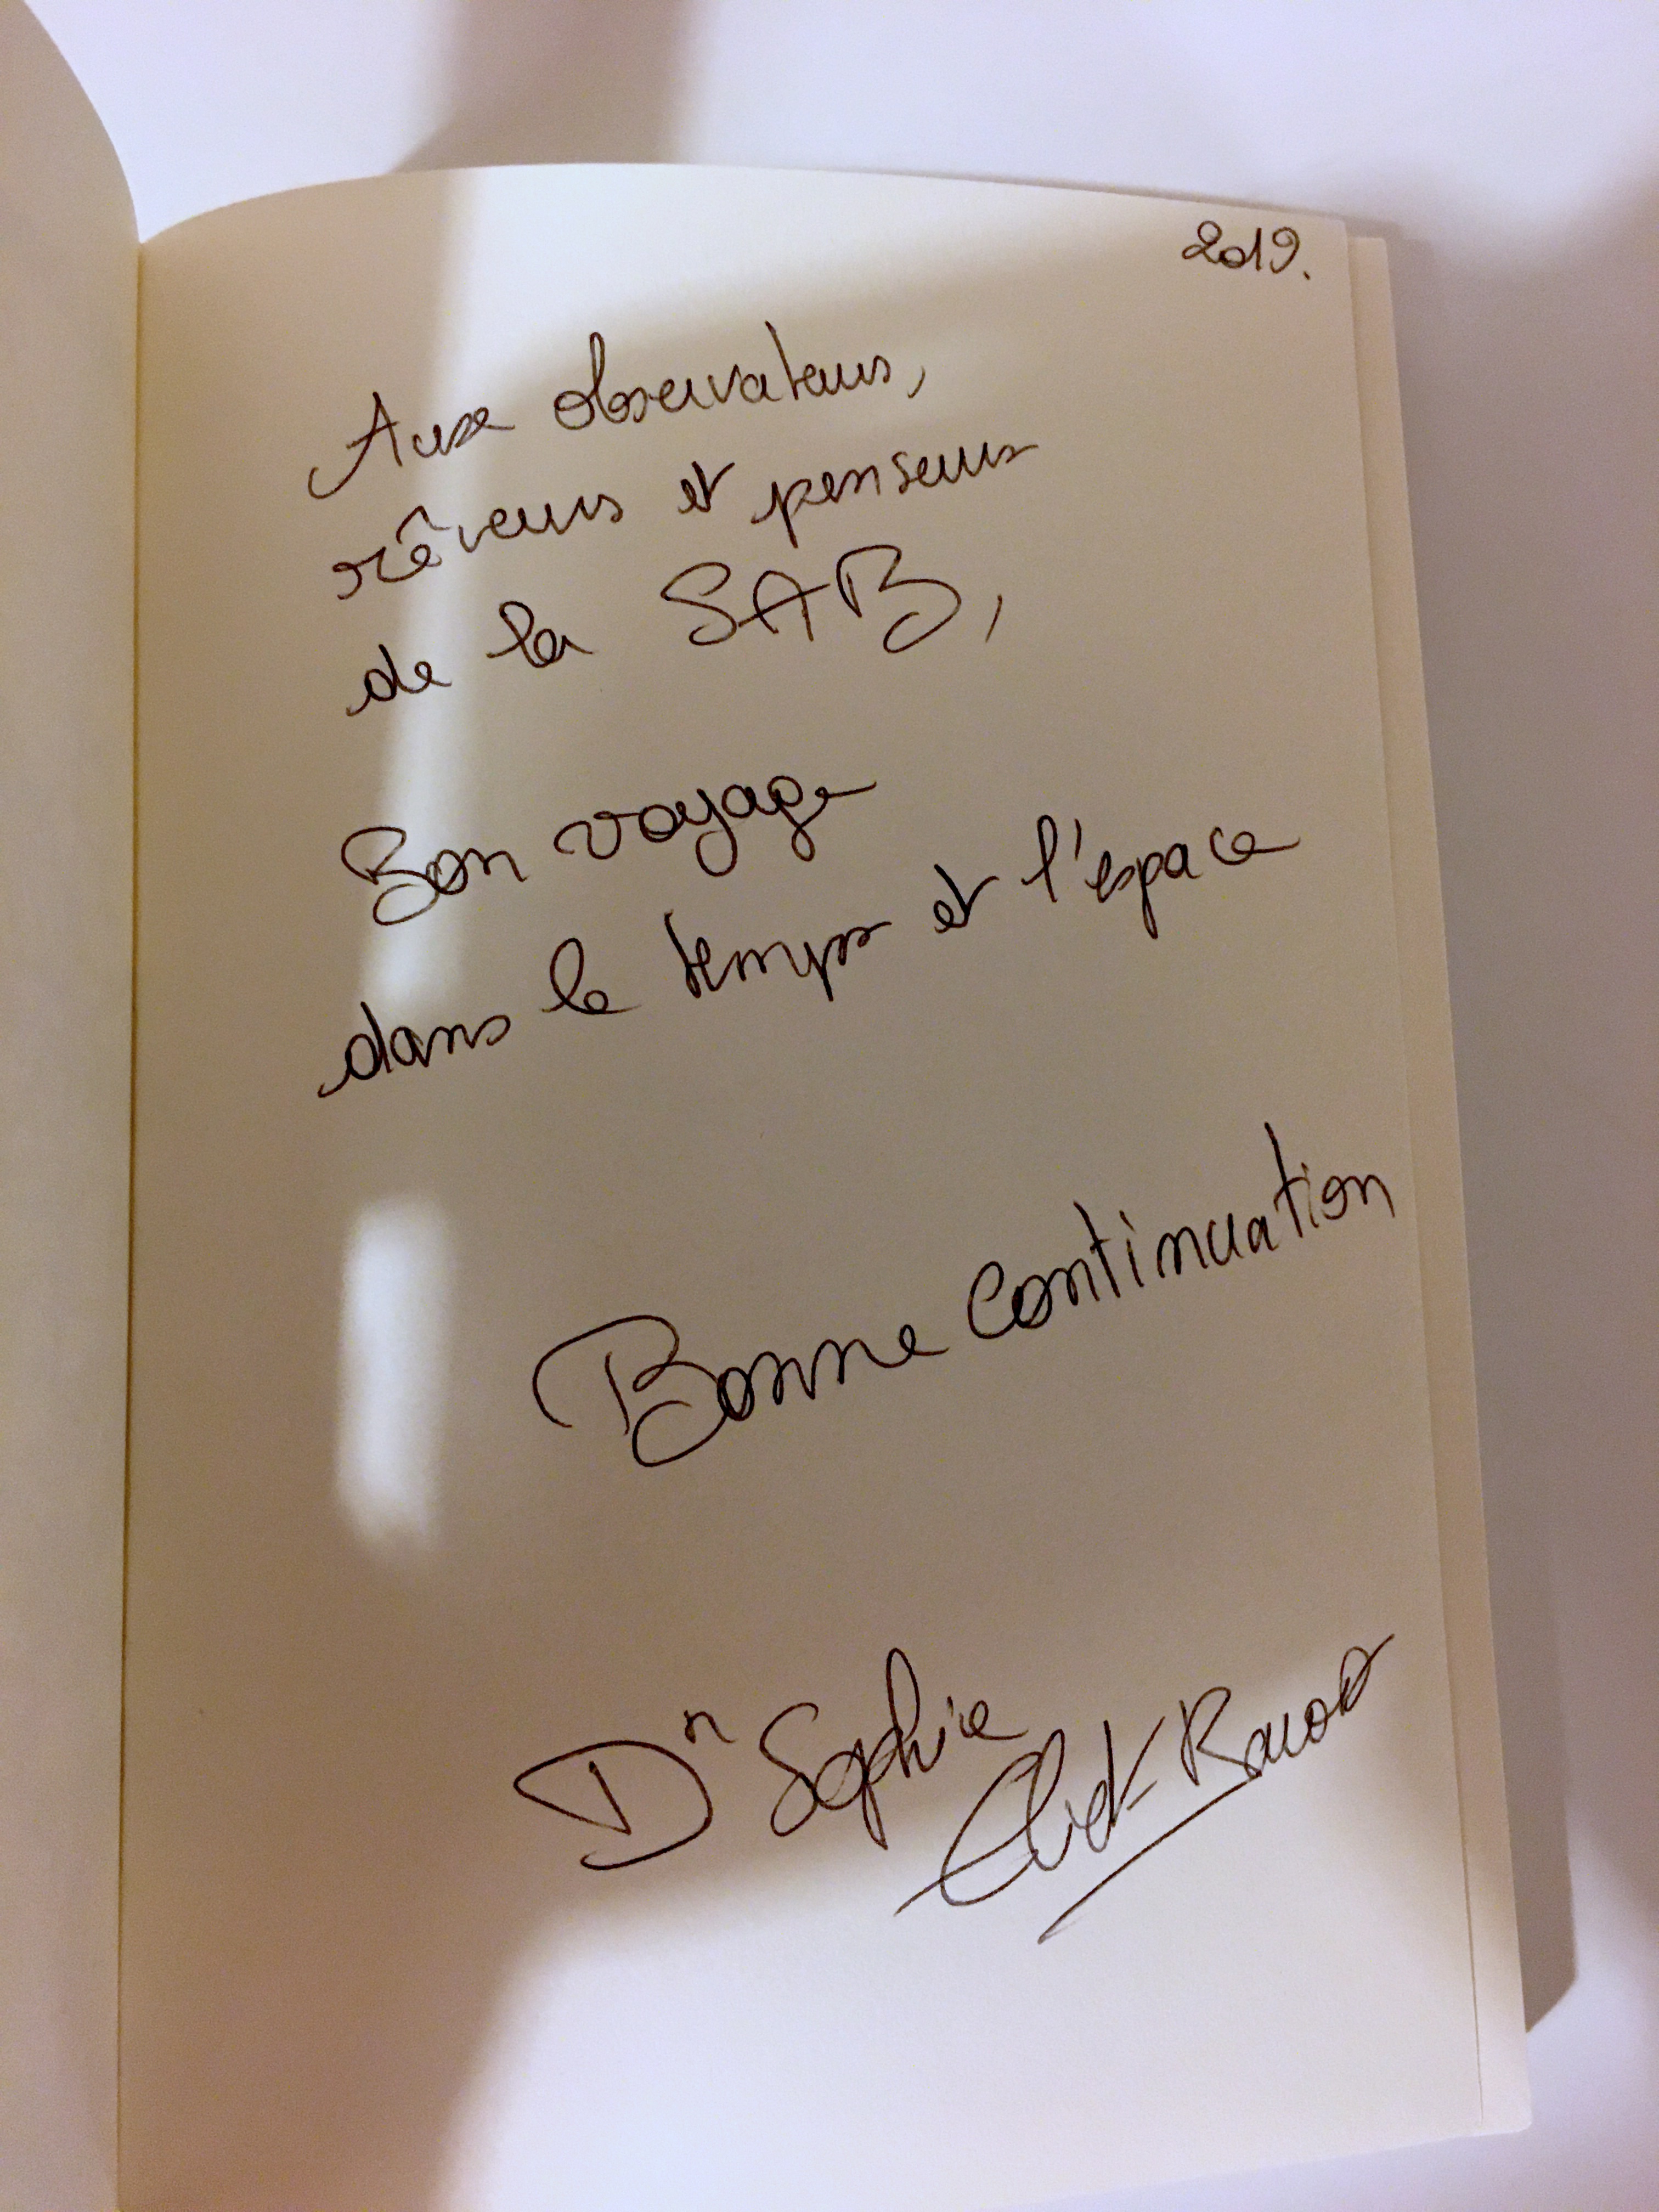 2019.
Aux observateurs,
rêveurs et penseurs
de la SAB,
Bon voyage
dans le temps et l'espace
Bonne continuation
Dr Sophie